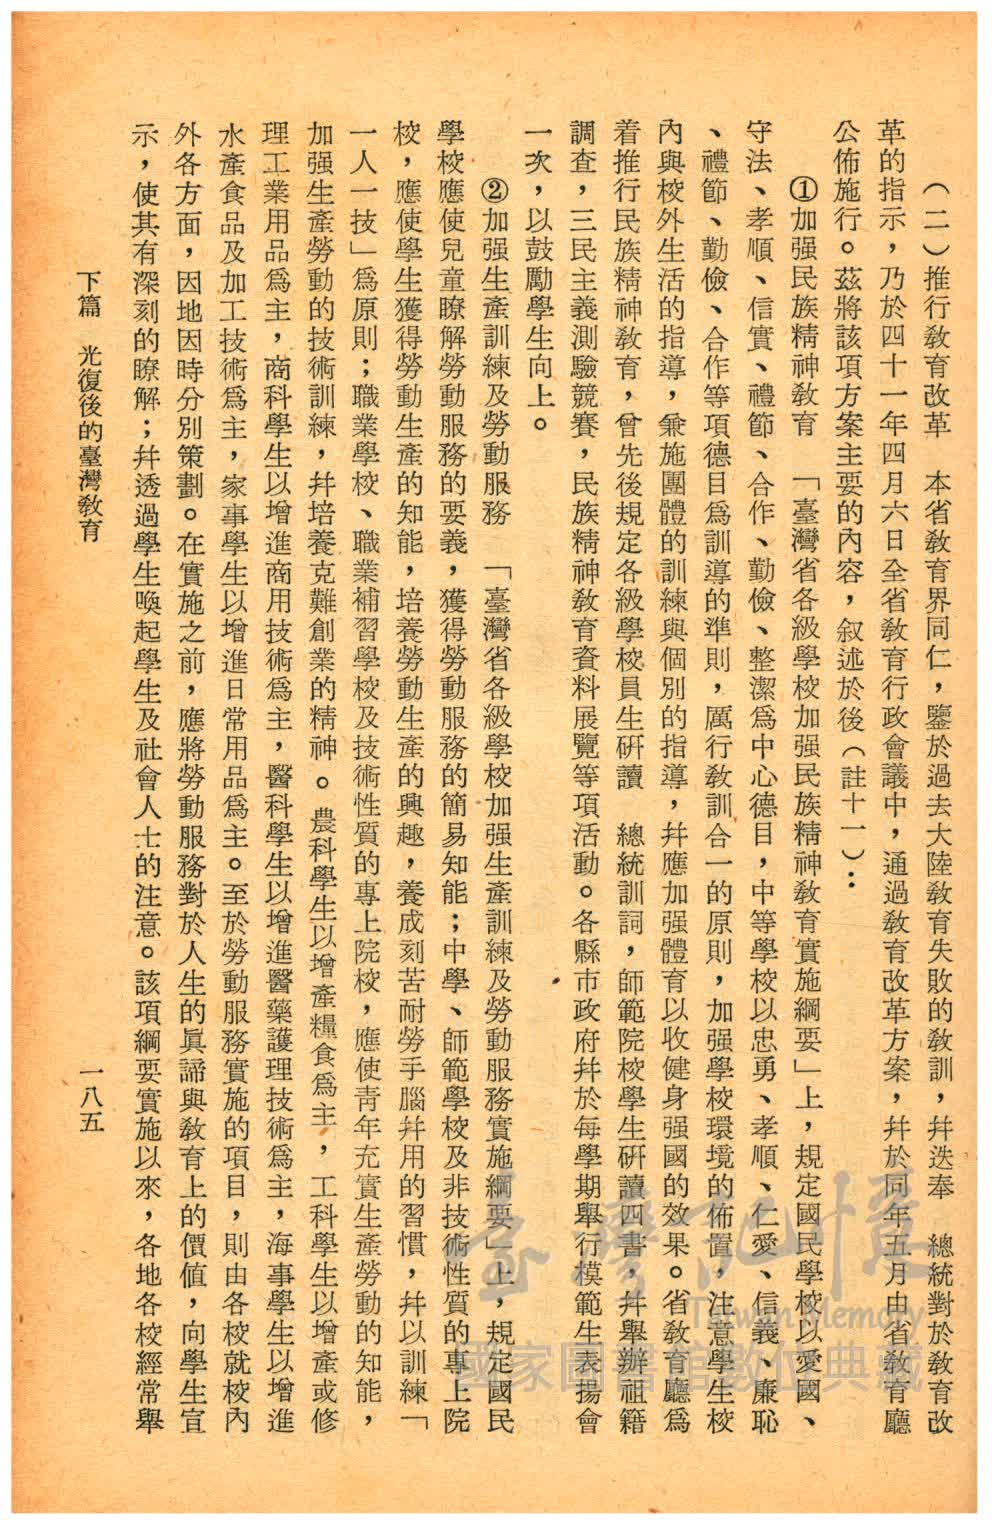 （二）推行教育改革　本省教育界同仁，鑒於過去大陸教育失敗的教訓，幷迭奉　總統對於教育改
革的指示，乃於四十一年四月六日全省教育行政會議中，通過教育改革方案，幷於同年五月由省教育廳
公佈施行。茲將該項方案主要的內容，叙述於後（註十一）：
①加强民族精神教育　「臺灣省各級學校加强民族精神教育實施綱要」上，規定國民學校以愛國、
守法、孝順、信實、禮節、合作、勤儉、整潔爲中心德目，中等學校以忠勇、孝順、仁愛、信義、廉恥
、禮節、勤儉、合作等項德目爲訓導的準則，厲行教訓合一的原則，加强學校環境的佈置，注意學生校
內與校外生活的指導，兼施團體的訓練與個別的指導，幷應加强體育以收健身强國的效果。省教育廳爲
着推行民族精神教育，曾先後規定各級學校員生研讀　總統訓詞，師範院校學生研讀四書，幷舉辦祖籍
調查，三民主義測驗競賽，民族精神教育資料展覽等項活動。各縣市政府幷於每學期舉行模範生表揚會
一次，以鼓勵學生向上。
②加强生產訓練及勞動服務　「臺灣省各級學校加强生產訓練及勞動服務實施綱要」上，規定國民
學校應使兒童瞭解勞動服務的要義，獲得勞動服務的簡易知能；中學、師範學校及非技術性質的專上院
校，應使學生獲得勞動生產的知能，培養勞動生產的興趣，養成刻苦耐勞手腦幷用的習慣，幷以訓練「
一人一技」爲原則；職業學校、職業補習學校及技術性質的專上院校，應使青年充實生產勞動的知能，
加强生產勞動的技術訓練，幷培養克難創業的精神。農科學生以增產糧食爲主，工科學生以增產或修
理工業用品爲主，商科學生以增進商用技術爲主，醫科學生以增進醫藥護理技術爲主，海事學生以增進
水產食品及加工技術爲主，家事學生以增進日常用品爲主。至於勞動服務實施的項目，則由各校就校內
外各方面，因地因時分別策劃。在實施之前，應將勞動服務對於人生的眞諦與教育上的價值，向學生宣
示，使其有深刻的瞭解；幷透過學生喚起學生及社會人士的注意。該項綱要實施以來，各地各校經常舉
下篇　光復後的臺灣教育
一八五
臺灣記憶
Taiwan Memory
國家圖書館數位典藏